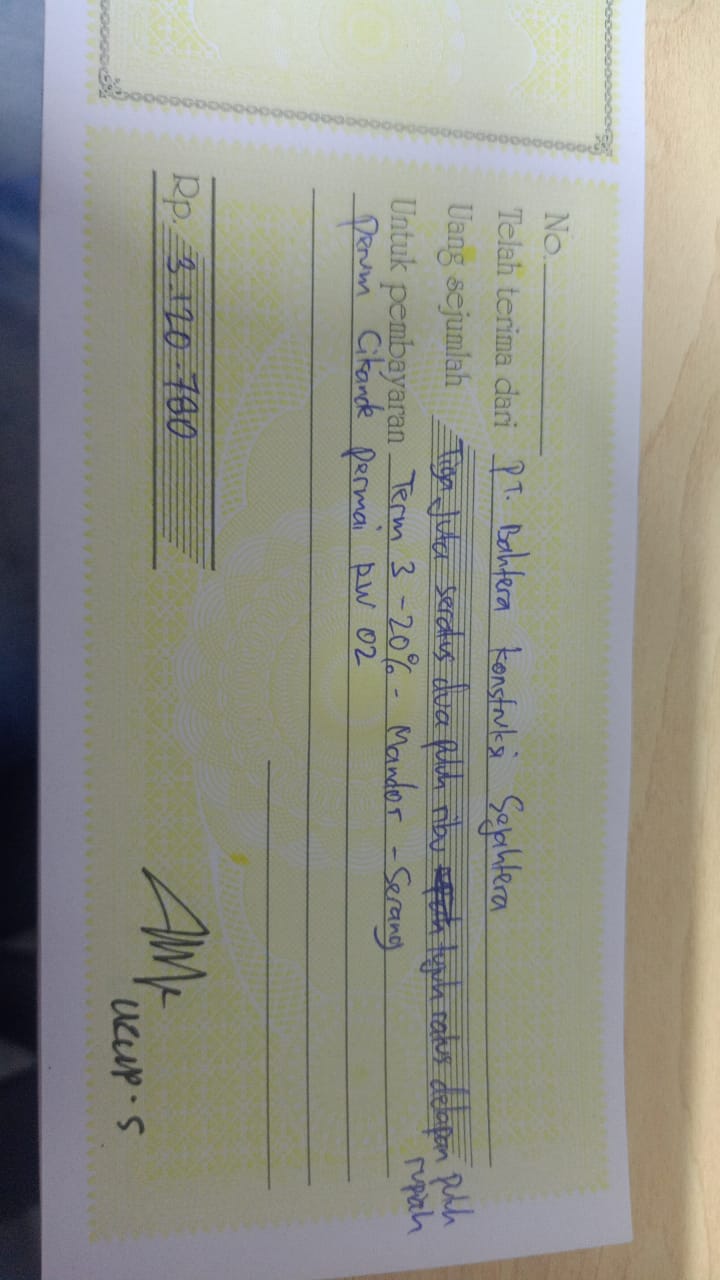 No.
Telah terima dari PT. Bahtera konstruksi Sejahtera
Uang sejumlah Tiga Juta seratus dua puluh ribu tujuh ratus delapan puluh rupiah
Untuk pembayaran Term 3 - 20% - Mandor - Serang
perum Cikande permai RW 02
Rp. 3.120.780
UCUP.S